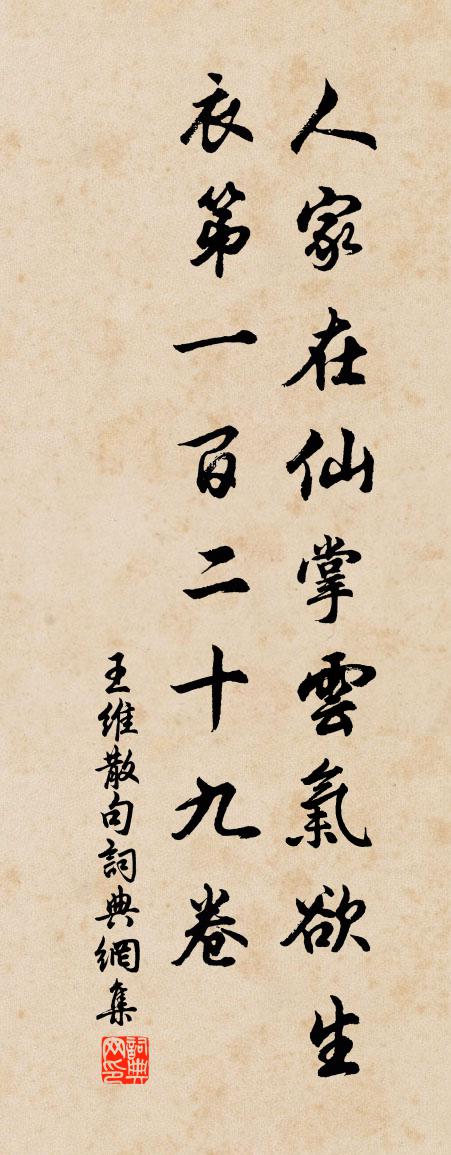 人家在仙掌雲氣欲生
衣第一百二十九卷
王維散句詞典網集
詞典
网印